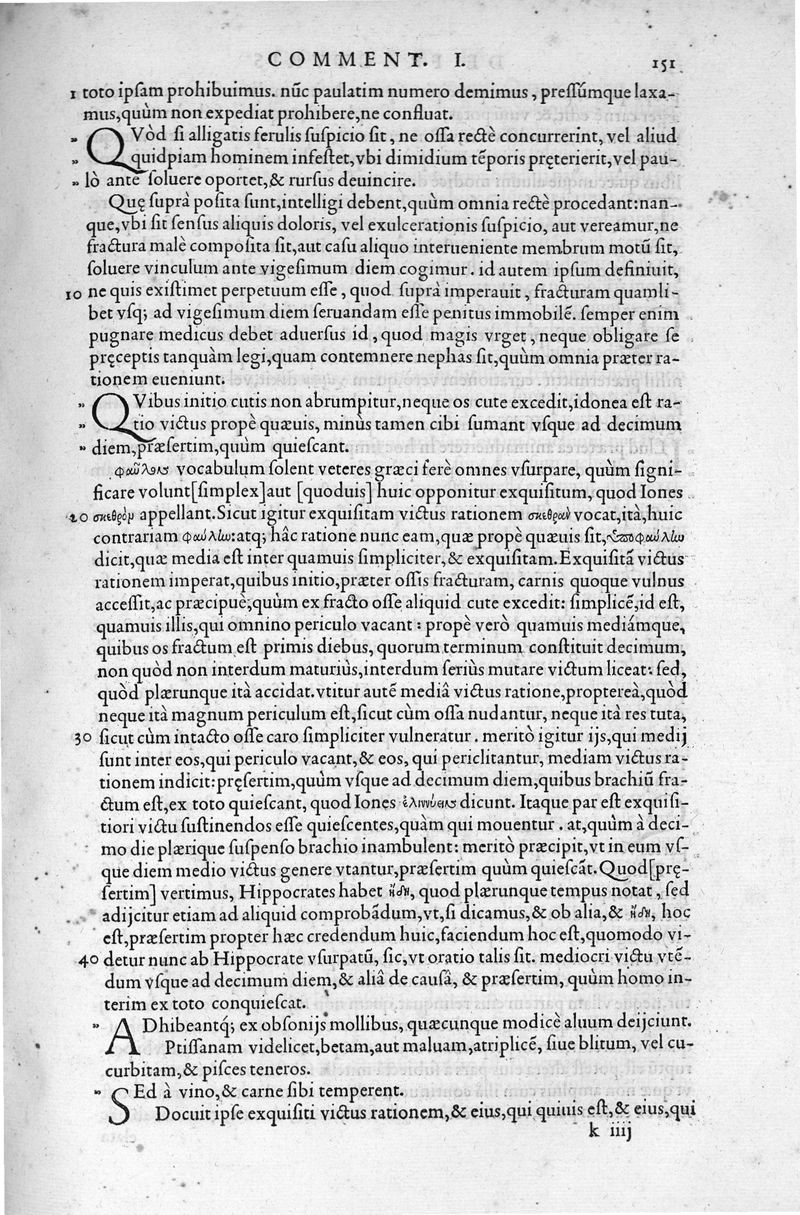 COMMENT. I. 151
1 toto ipſam prohibuimus. nūc paulatim numero demimus, preſſúmque laxa-
mus,quùm non expediat prohibere,ne confluat.
„ QVòd ſi alligatis ferulis ſuſpicio ſit, ne oſſa rectè concurrerint, vel aliud
„ quidpiam hominem infeſtet,vbi dimidium tēporis pręterierit,vel pau-
„ lò ante ſoluere oportet,& rurſus deuincire.
Quę ſuprà poſita ſunt,intelligi debent,quùm omnia rectè procedant:nan-
que,vbi ſit ſenſus aliquis doloris, vel exulcerationis ſuſpicio, aut vereamur,ne
fractura malè compoſita ſit,aut caſu aliquo interueniente membrum motū ſit,
ſoluere vinculum ante vigeſimum diem cogimur. id autem ipſum definiuit,
10 ne quis exiſtimet perpetuum eſſe, quod ſuprà imperauit, fracturam quamli-
bet vſq; ad vigeſimum diem ſeruandam eſſe penitus immobilē. ſemper enim
pugnare medicus debet aduerſus id, quod magis vrget, neque obligare ſe
pręceptis tanquàm legi,quam contemnere nephas ſit,quùm omnia præter ra-
tionem eueniunt.
„ QVibus initio cutis non abrumpitur,neque os cute excedit,idonea eſt ra-
„ tio victus propè quæuis, minùs tamen cibi ſumant vſque ad decimum
„ diem,præſertim,quùm quieſcant.
φαῦλον vocabulum ſolent veteres græci ferè omnes vſurpare, quùm ſigni-
ficare volunt[ſimplex]aut [quoduis] huic opponitur exquiſitum, quod Iones
20 σκεθρὸν appellant.Sicut igitur exquiſitam victus rationem σκεθρὰν vocat,ità,huic
contrariam φαύλην:atq; hâc ratione nunc eam,quæ propè quæuis ſit,ὑποφαύλην
dicit,quæ media eſt inter quamuis ſimpliciter,& exquiſitam.Exquiſitā victus
rationem imperat,quibus initio,præter oſſis fracturam, carnis quoque vulnus
acceſſit,ac præcipuè,quùm ex fracto oſſe aliquid cute excedit: ſimplicē,id eſt,
quamuis illis,qui omnino periculo vacant: propè verò quamuis mediámque,
quibus os fractum eſt primis diebus, quorum terminum conſtituit decimum,
non quòd non interdum maturiùs,interdum ſeriùs mutare victum liceat: ſed,
quòd plærunque ità accidat.vtitur autē mediâ victus ratione,propterea,quòd
neque ità magnum periculum eſt,ſicut cùm oſſa nudantur, neque ità res tuta,
30 ſicut cùm intacto oſſe caro ſimpliciter vulneratur. meritò igitur ijs,qui medij
ſunt inter eos,qui periculo vacant,& eos, qui periclitantur, mediam victus ra-
tionem indicit:pręſertim,quùm vſque ad decimum diem,quibus brachiū fra-
ctum eſt,ex toto quieſcant, quod Iones ἐλιννύειν dicunt. Itaque par eſt exquiſi-
tiori victu ſuſtinendos eſſe quieſcentes,quàm qui mouentur. at,quùm à deci-
mo die plærique ſuſpenſo brachio inambulent: meritò præcipit,vt in eum vſ-
que diem medio victus genere vtantur,præſertim quùm quieſcāt.Quod[prę-
ſertim] vertimus, Hippocrates habet ἤδη, quod plærunque tempus notat, ſed
adijcitur etiam ad aliquid comprobādum,vt,ſi dicamus,& ob alia,& ἤδη, hoc
eſt,præſertim propter hæc credendum huic,faciendum hoc eſt,quomodo vi-
40 detur nunc ab Hippocrate vſurpatū, ſic,vt oratio talis ſit. mediocri victu vtē-
dum vſque ad decimum diem,& aliâ de cauſâ, & præſertim, quùm homo in-
terim ex toto conquieſcat.
„ ADhibeantq; ex obſonijs mollibus, quæcunque modicè aluum deijciunt.
Ptiſſanam videlicet,betam,aut maluam,atriplicē, ſiue blitum, vel cu-
curbitam,& piſces teneros.
„ SEd à vino,& carne ſibi temperent.
Docuit ipſe exquiſiti victus rationem,& eius,qui quiuis eſt,& eius,qui
k iiij